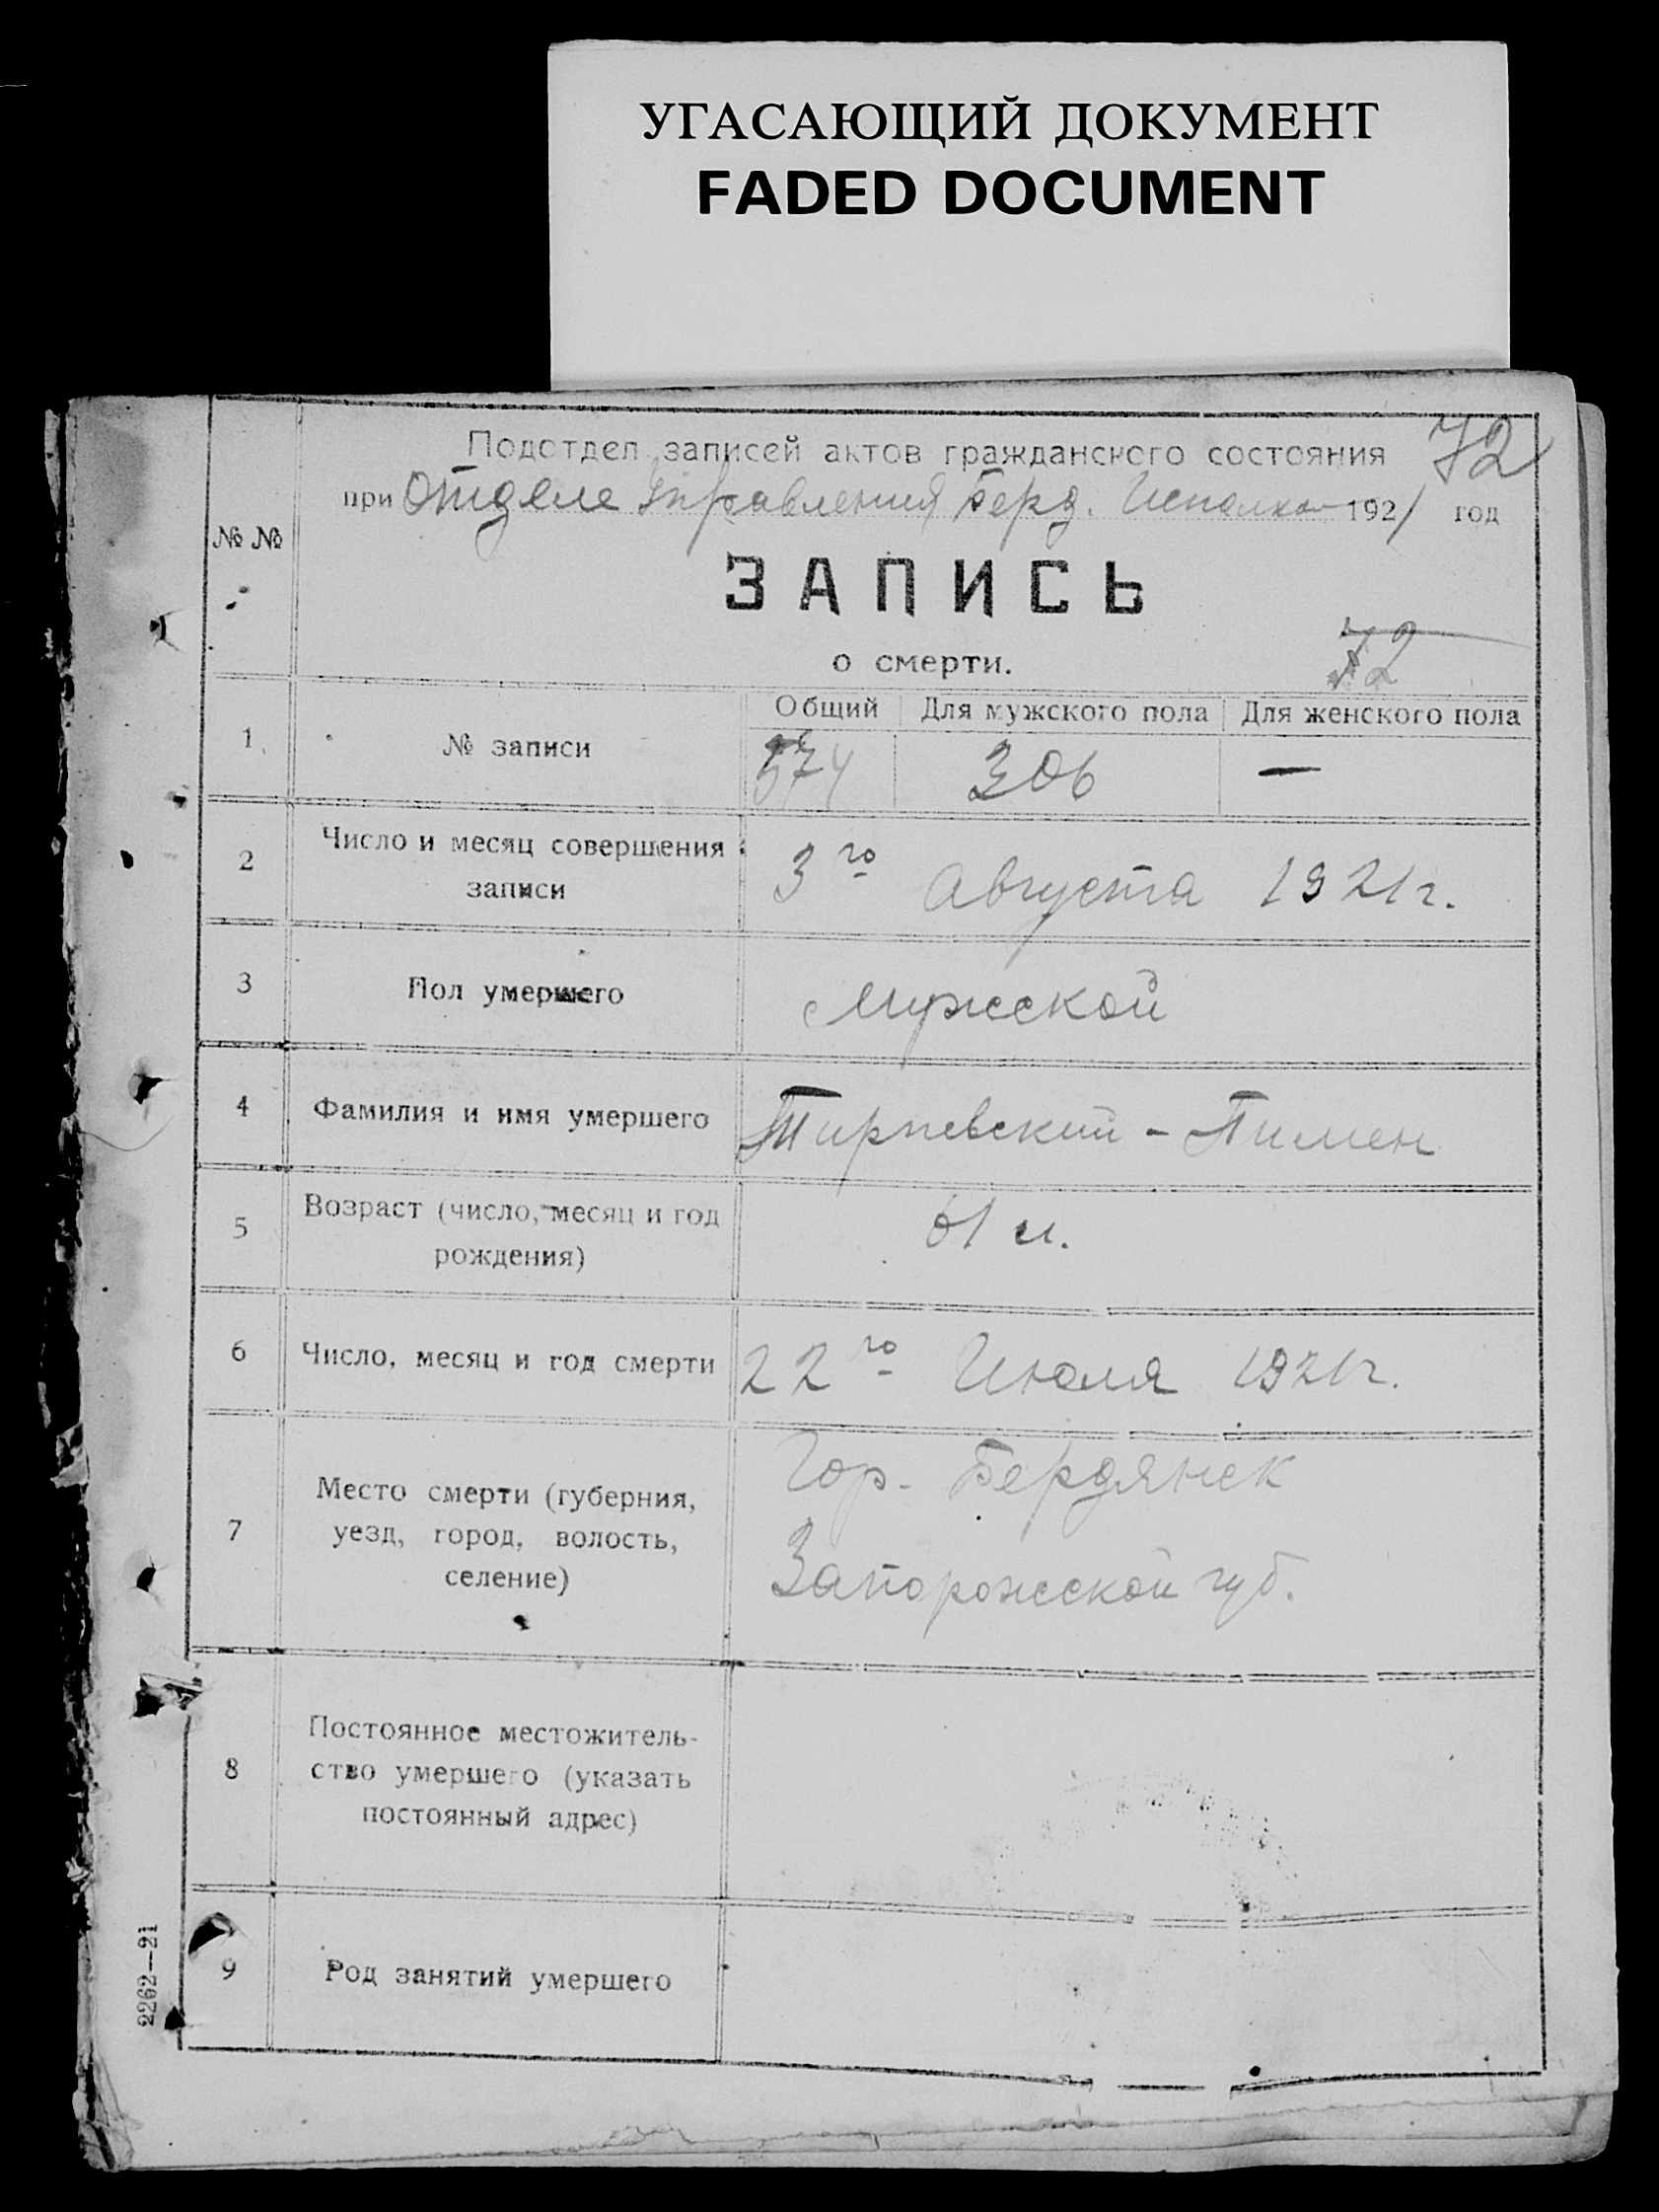 УГАСАЮЩИЙ ДОКУМЕНТ
FADED DOCUMENT
72
Подотдел записей актов гражданского состояния
при Отделе Управления Берд. Исполком 1921 год
№ №
ЗАПИСЬ
о смерти.
72
1 № записи
Общий Для мужского пола Для женского пола
574 306 —
2 Число и месяц совершения
записи
3го Августа 1921 г.
3 Пол умершего
Мужской
4 Фамилия и имя умершего
- Пимен
5 Возраст (число, месяц и год
рождения)
61 л.
6 Число, месяц и год смерти
22го Июля 1921 г.
7 Место смерти (губерния,
уезд, город, волость,
селение)
Гор. Бердянск
Запорожской губ.
8 Постоянное местожитель-
ство умершего (указать
постоянный адрес)
9 Род занятий умершего
2262—21